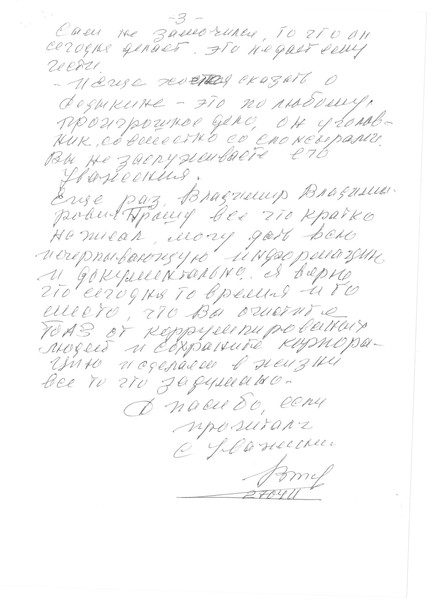 - 3 -
Сам не замочился, то что он
сегодня делает. это не дает ему
чести.
- И еще хотел сказать о
- это по любому,
проигрошное дело, он уголов-
ник, совместно со спонсорами.
Вы не заслуживаете его
уважения.
Еще раз. Владимир Владими-
рович Прошу все что кратко
написал, могу дать всю
исчерпывающую информацию
и документально. я верю
что сегодня то время и то
место, что Вы очистите
ТоАЗ от коррумпированных
людей и сохраните корпора-
цию и сделаем в жизни
все то что задумано.
Спасибо, если
прочитал
с уважением.
270411